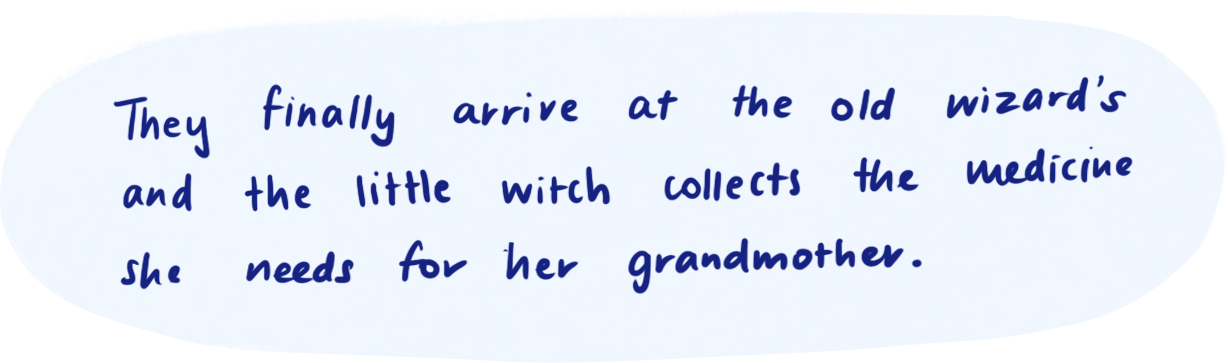 They finally arrive at the old wizard's
and the little witch collects the medicine
she needs for her grandmother.